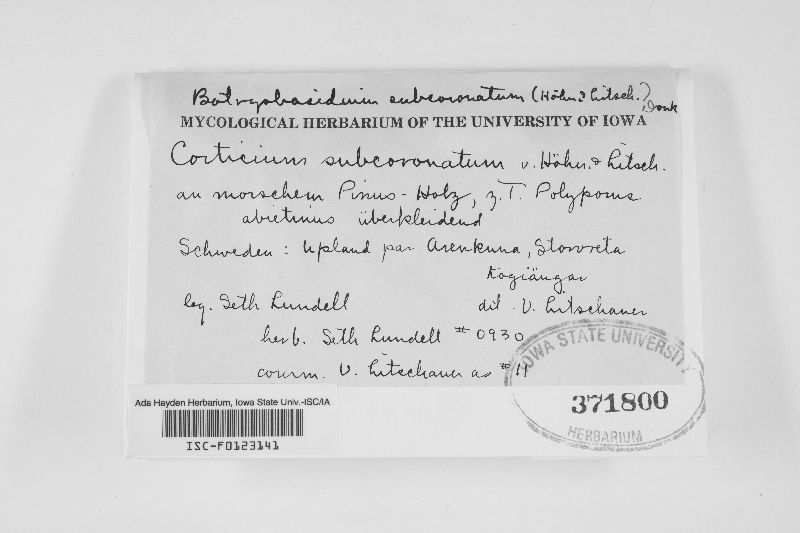 Botryobasidium subcoronatum (Höhn. & Litsch.) Donk
MYCOLOGICAL HERBARIUM OF THE UNIVERSITY OF IOWA
Corticium subcoronatum v. Höhn. & Litsch.
an morschem Pinus-Holz, z.T. Polyporus
abietinus überkleidend
Schweden: Upland par Arenkuna, Storvreta
Kogiängar
leg. Seth Lundell det. V. Litschauer
herb. Seth Lundell # 0930
comm. V. Litschauer as # 11
IOWA STATE UNIVERSITY
371800
HERBARIUM
Ada Hayden Herbarium, Iowa State Univ.-ISC/IA
ISC-F0123141